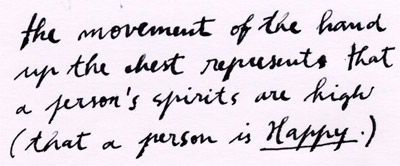 the movement of the hand
up the chest represents that
a person's spirits are high
(that a person is Happy.)